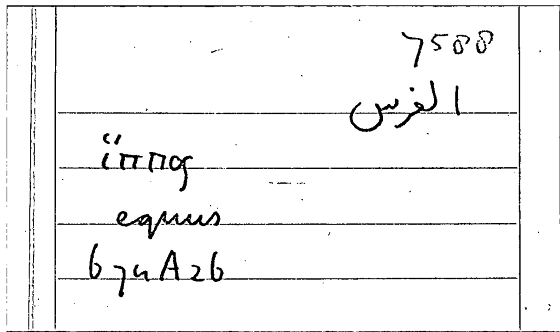 7588
الفرس
ἵππος
equus
67a A26